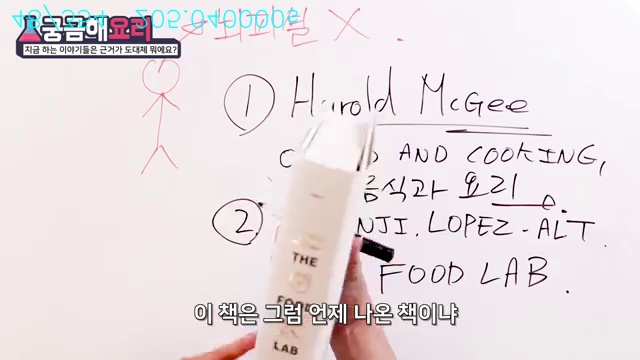 48/334 205.040000s
궁금해요리
지금 하는 이야기들은 근거가 도대체 뭐에요?
X .
① Harold McGee
AND COOKING,
음식과 요리
② NJI. LOPEZ-ALT.
FOOD LAB.
THE
FOOD
LAB
이 책은 그럼 언제 나온 책이냐